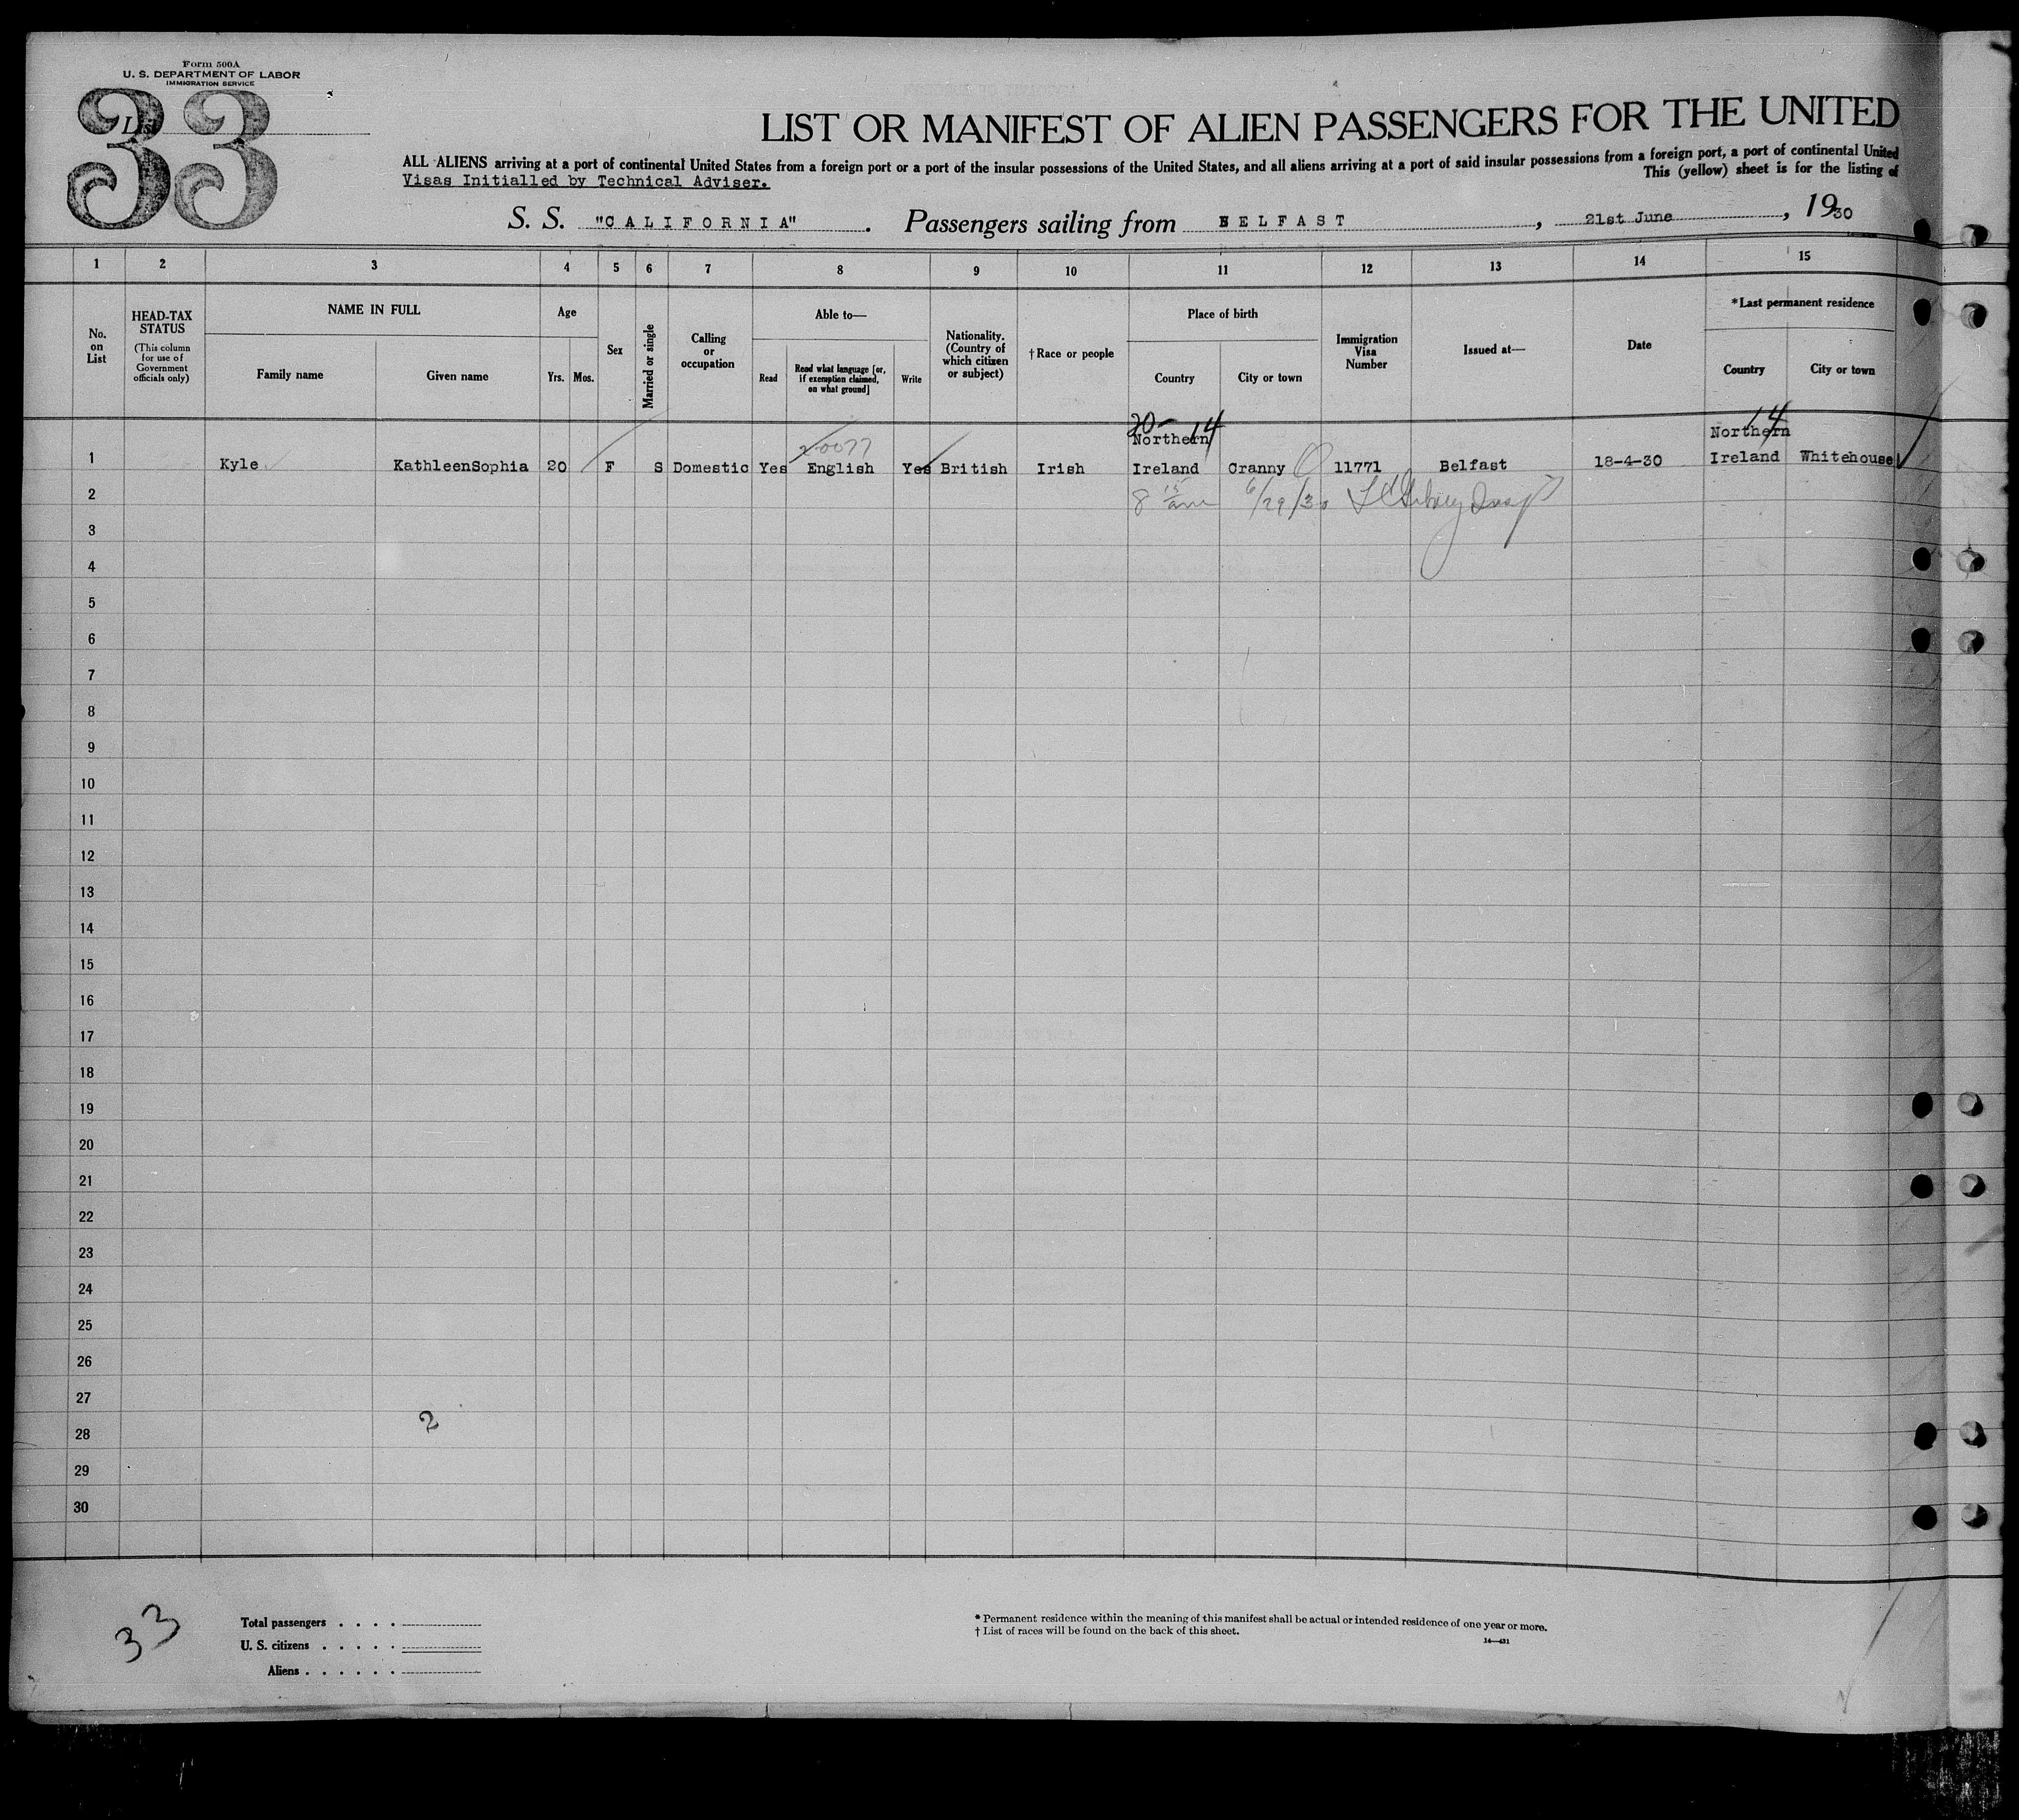 Form 500A
U. S. DEPARTMENT OF LABOR
IMMIGRATION SERVICE
33
List
LIST OR MANIFEST OF ALIEN PASSENGERS FOR THE UNITED
ALL ALIENS arriving at a port of continental United States from a foreign port or a port of the insular possessions of the United States, and all aliens arriving at a port of said insular possessions from a foreign port, a port of continental United
Visas Initialled by Technical Adviser. This (yellow) sheet is for the listing of
S. S. "CALIFORNIA". Passengers sailing from BELFAST, 21st June, 1930
1 2 3 4 5 6 7 8 9 10 11 12 13 14 15
No. on List
HEAD-TAX STATUS
(This column for use of Government officials only)
NAME IN FULL
Family name Given name
Age
Yrs. Mos.
Sex
Married or single
Calling or occupation
Able to—
Read
Read what language [or, if exemption claimed, on what ground]
Write
Nationality. (Country of which citizen or subject)
† Race or people
Place of birth
Country City or town
Immigration Visa Number
Issued at—
Date
*Last permanent residence
Country City or town
20- 14 14
Northern Northern
1 Kyle KathleenSophia 20 F S Domestic Yes English Yes British Irish Ireland Cranny 11771 Belfast 18-4-30 Ireland Whitehouse
2 8 15 am 6/29/30
3
4
5
6
7
8
9
10
11
12
13
14
15
16
17
18
19
20
21
22
23
24
25
26
27
2
28
29
30
33
Total passengers . . . .
U. S. citizens . . . . .
Aliens . . . . . .
* Permanent residence within the meaning of this manifest shall be actual or intended residence of one year or more.
† List of races will be found on the back of this sheet.
14—431